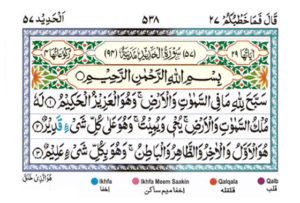 قَالَ فَمَا خَطْبُكُمْ ٢٧ ٥٣٨ اَلْحَدِيْد ٥٧
اٰيَاتُهَا ٢٩ (٥٧) سُوْرَةُ الْحَدِيْدِ مَدَنِيَّةٌ (٩٤) رُكُوْعَاتُهَا ٤
بِسْمِ اللّٰهِ الرَّحْمٰنِ الرَّحِيْمِ
سَبَّحَ لِلّٰهِ مَا فِى السَّمٰوٰتِ وَالْاَرْضِ ۚ وَهُوَ الْعَزِيْزُ الْحَكِيْمُ ① لَهٗ
مُلْكُ السَّمٰوٰتِ وَالْاَرْضِ ۚ يُحْىٖ وَيُمِيْتُ ۚ وَهُوَ عَلٰى كُلِّ شَىْءٍ قَدِيْرٌ ②
هُوَ الْاَوَّلُ وَالْاٰخِرُ وَالظَّاهِرُ وَالْبَاطِنُ ۚ وَهُوَ بِكُلِّ شَىْءٍ عَلِيْمٌ ③
هُوَ الَّذِىْ خَلَقَ
Ikhfa Ikhfa Meem Saakin Qalqala Qalb
اخفا اخفا میم ساکن قلقلہ قلب